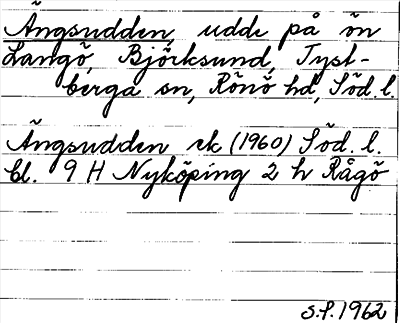 Ängsudden, udde på ön
Långö, Björksund, Tyst-
berga sn, Rönö hd, Söd. l.
Ängsudden ek (1960) Söd. l.
bl. 9 H Nyköping 2 h Rågö
S.f. 1962